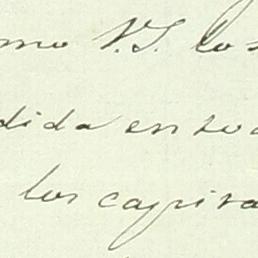 mo V.S. los
dida en to
los capita